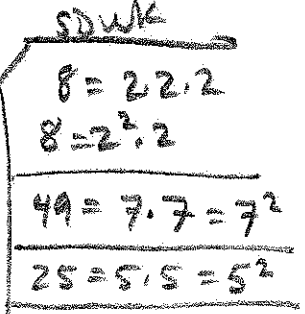 SDWK
8 = 2.2.2
8 = 2².2
49 = 7.7 = 7²
25 = 5.5 = 5²